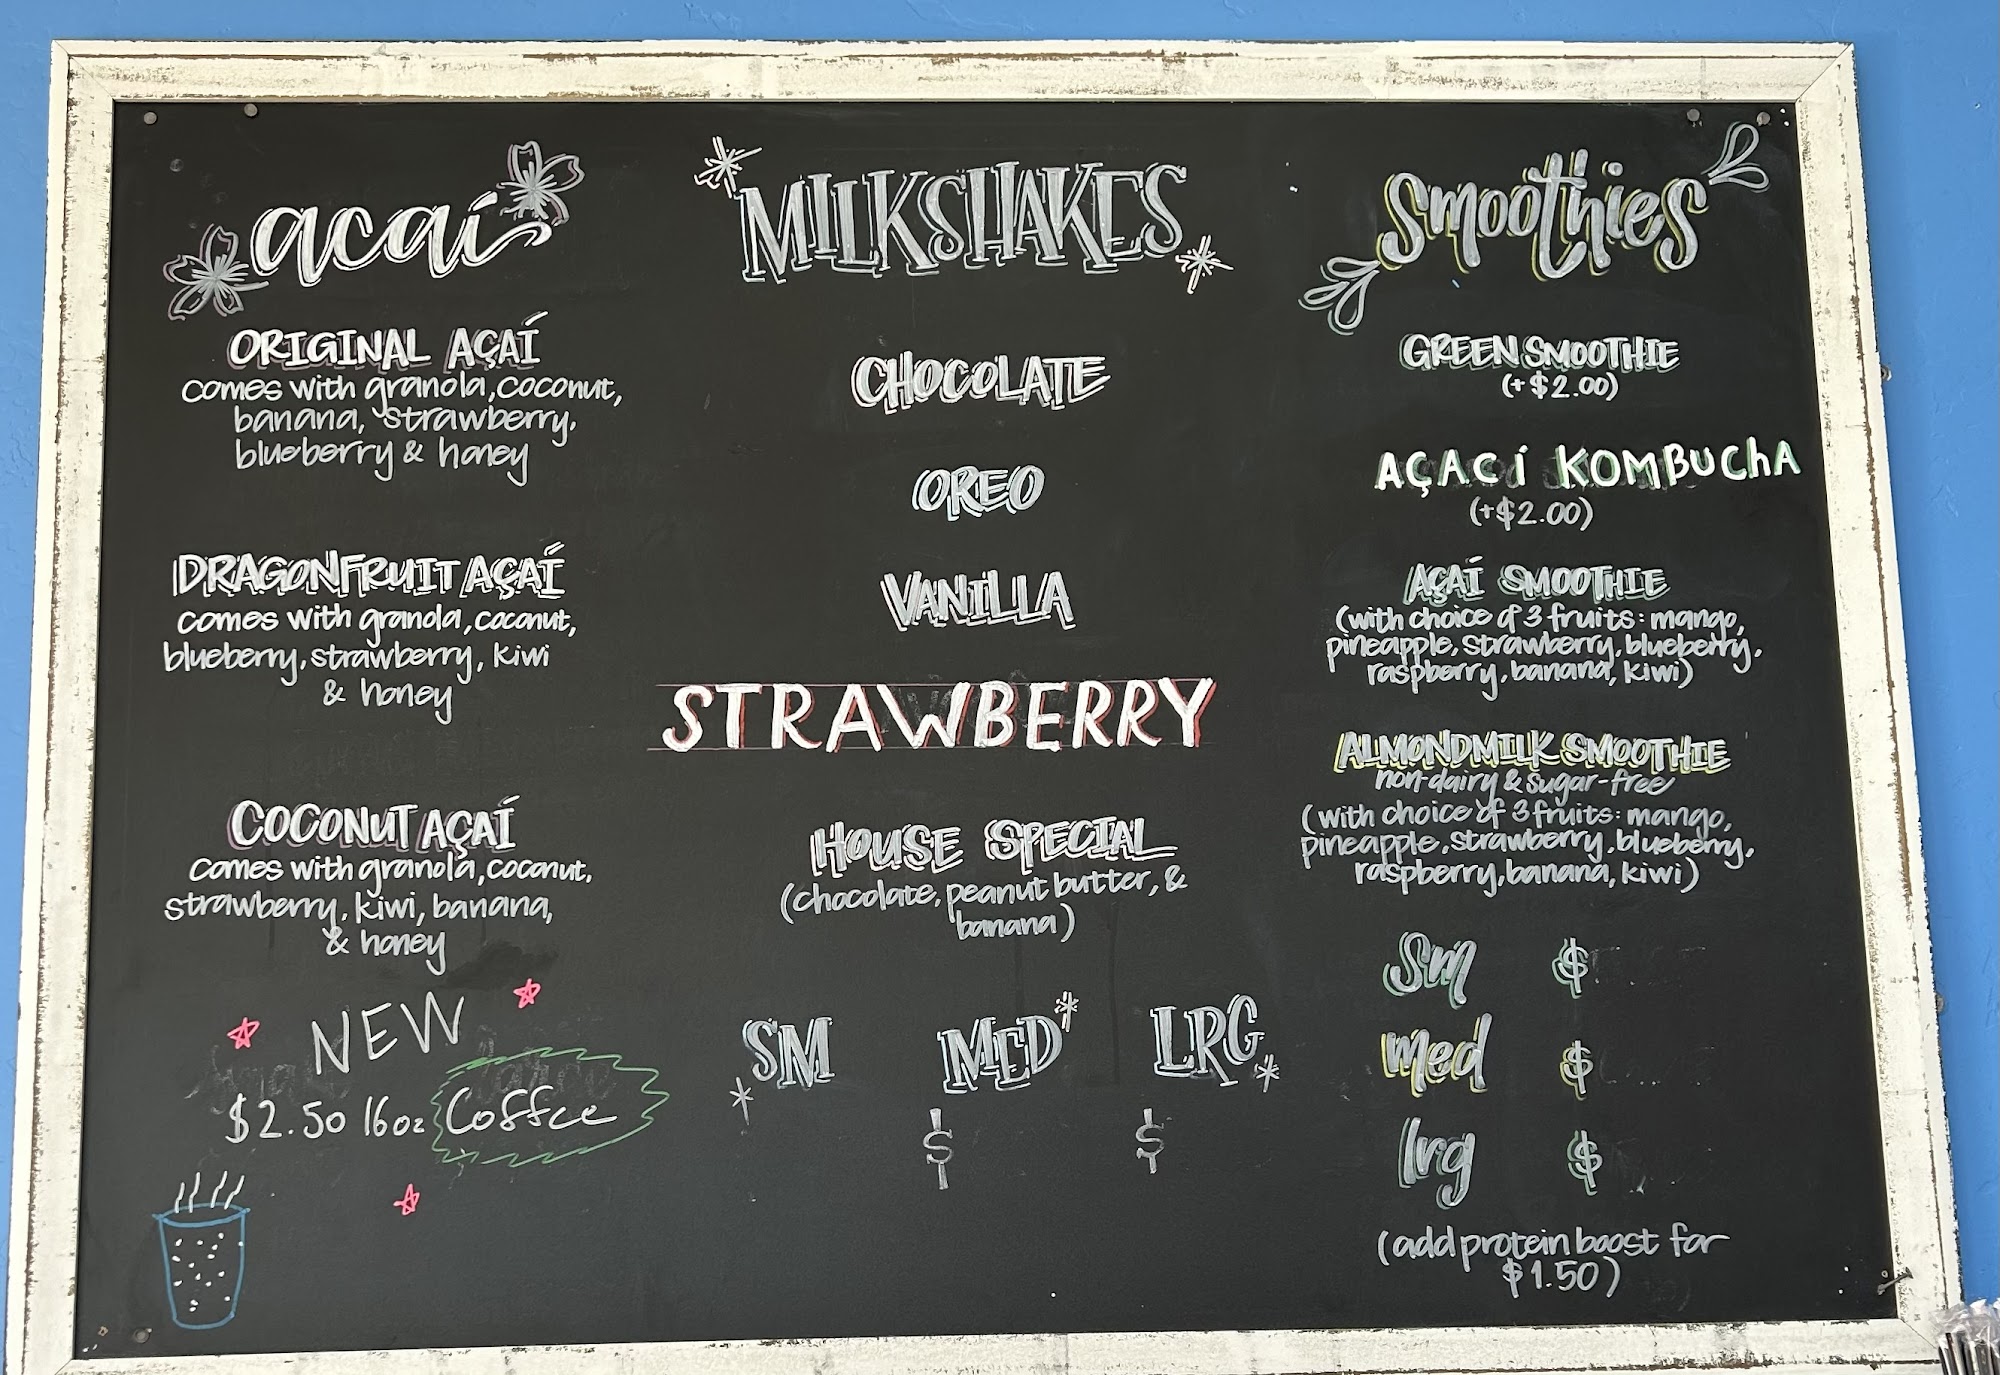 acaí
ORIGINAL AÇAÍ
comes with granola, coconut,
banana, strawberry,
blueberry & honey
DRAGONFRUIT AÇAÍ
comes with granola, coconut,
blueberry, strawberry, kiwi
& honey
COCONUT AÇAÍ
comes with granola, coconut,
strawberry, kiwi, banana,
& honey
NEW
$2.50 16oz Coffee
MILKSHAKES
CHOCOLATE
OREO
VANILLA
STRAWBERRY
HOUSE SPECIAL
(chocolate, peanut butter, &
banana)
SM MED LRG
$ $
smoothies
GREEN SMOOTHIE
(+$2.00)
AÇACÍ KOMBUChA
(+$2.00)
AÇAÍ SMOOTHIE
(with choice of 3 fruits: mango,
pineapple, strawberry, blueberry,
raspberry, banana, kiwi)
ALMONDMILK SMOOTHIE
non-dairy & sugar-free
(with choice of 3 fruits: mango,
pineapple, strawberry, blueberry,
raspberry, banana, kiwi)
Sm $
med $
lrg $
(add protein boost for
$1.50)